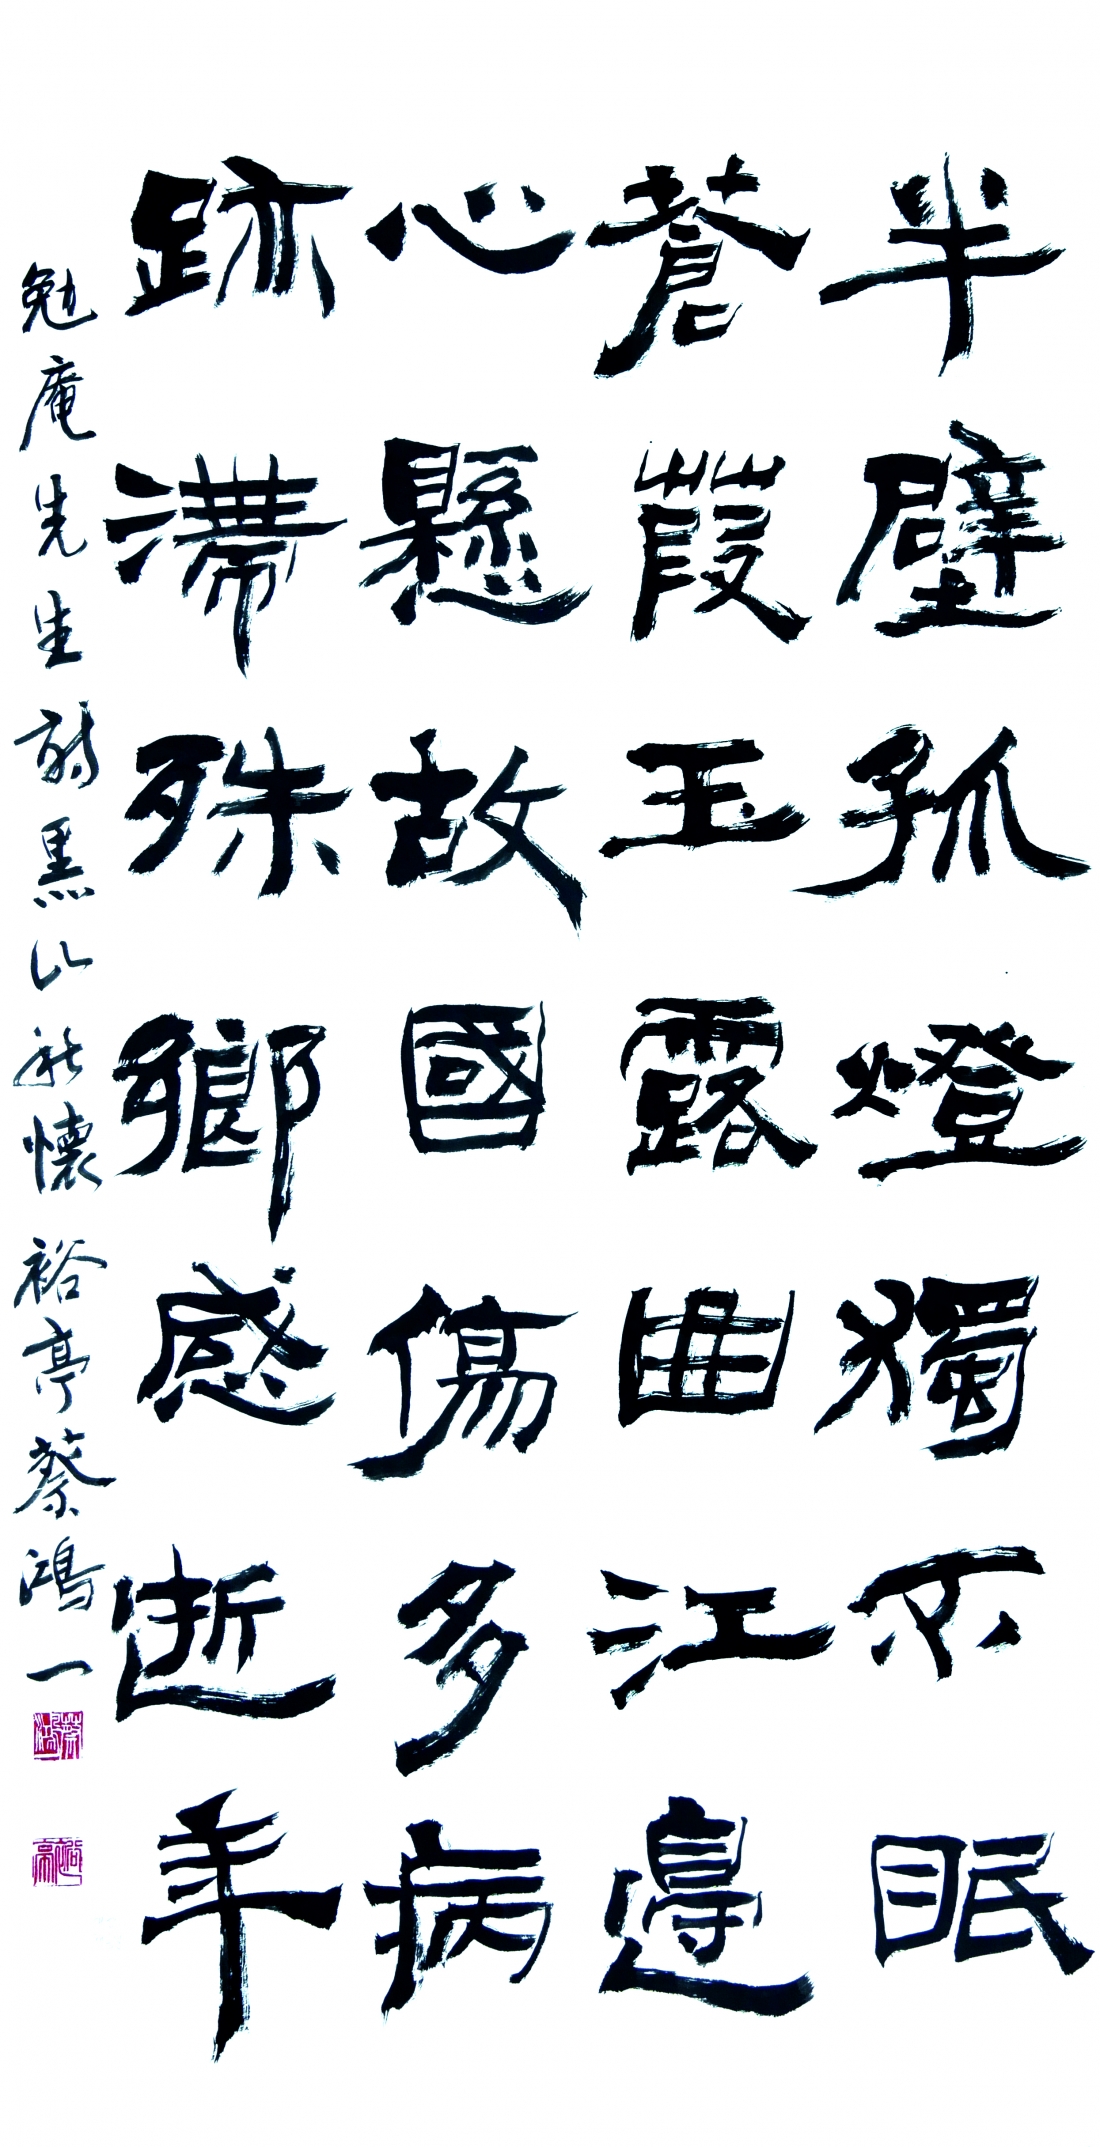 半壁孤燈獨不眠
蒼葭玉露曲江邊
心懸故國傷多病
跡滯殊鄉感逝年
勉庵先生詩黑山秋懷 裕亭 蔡鴻一
蔡鴻一
裕亭